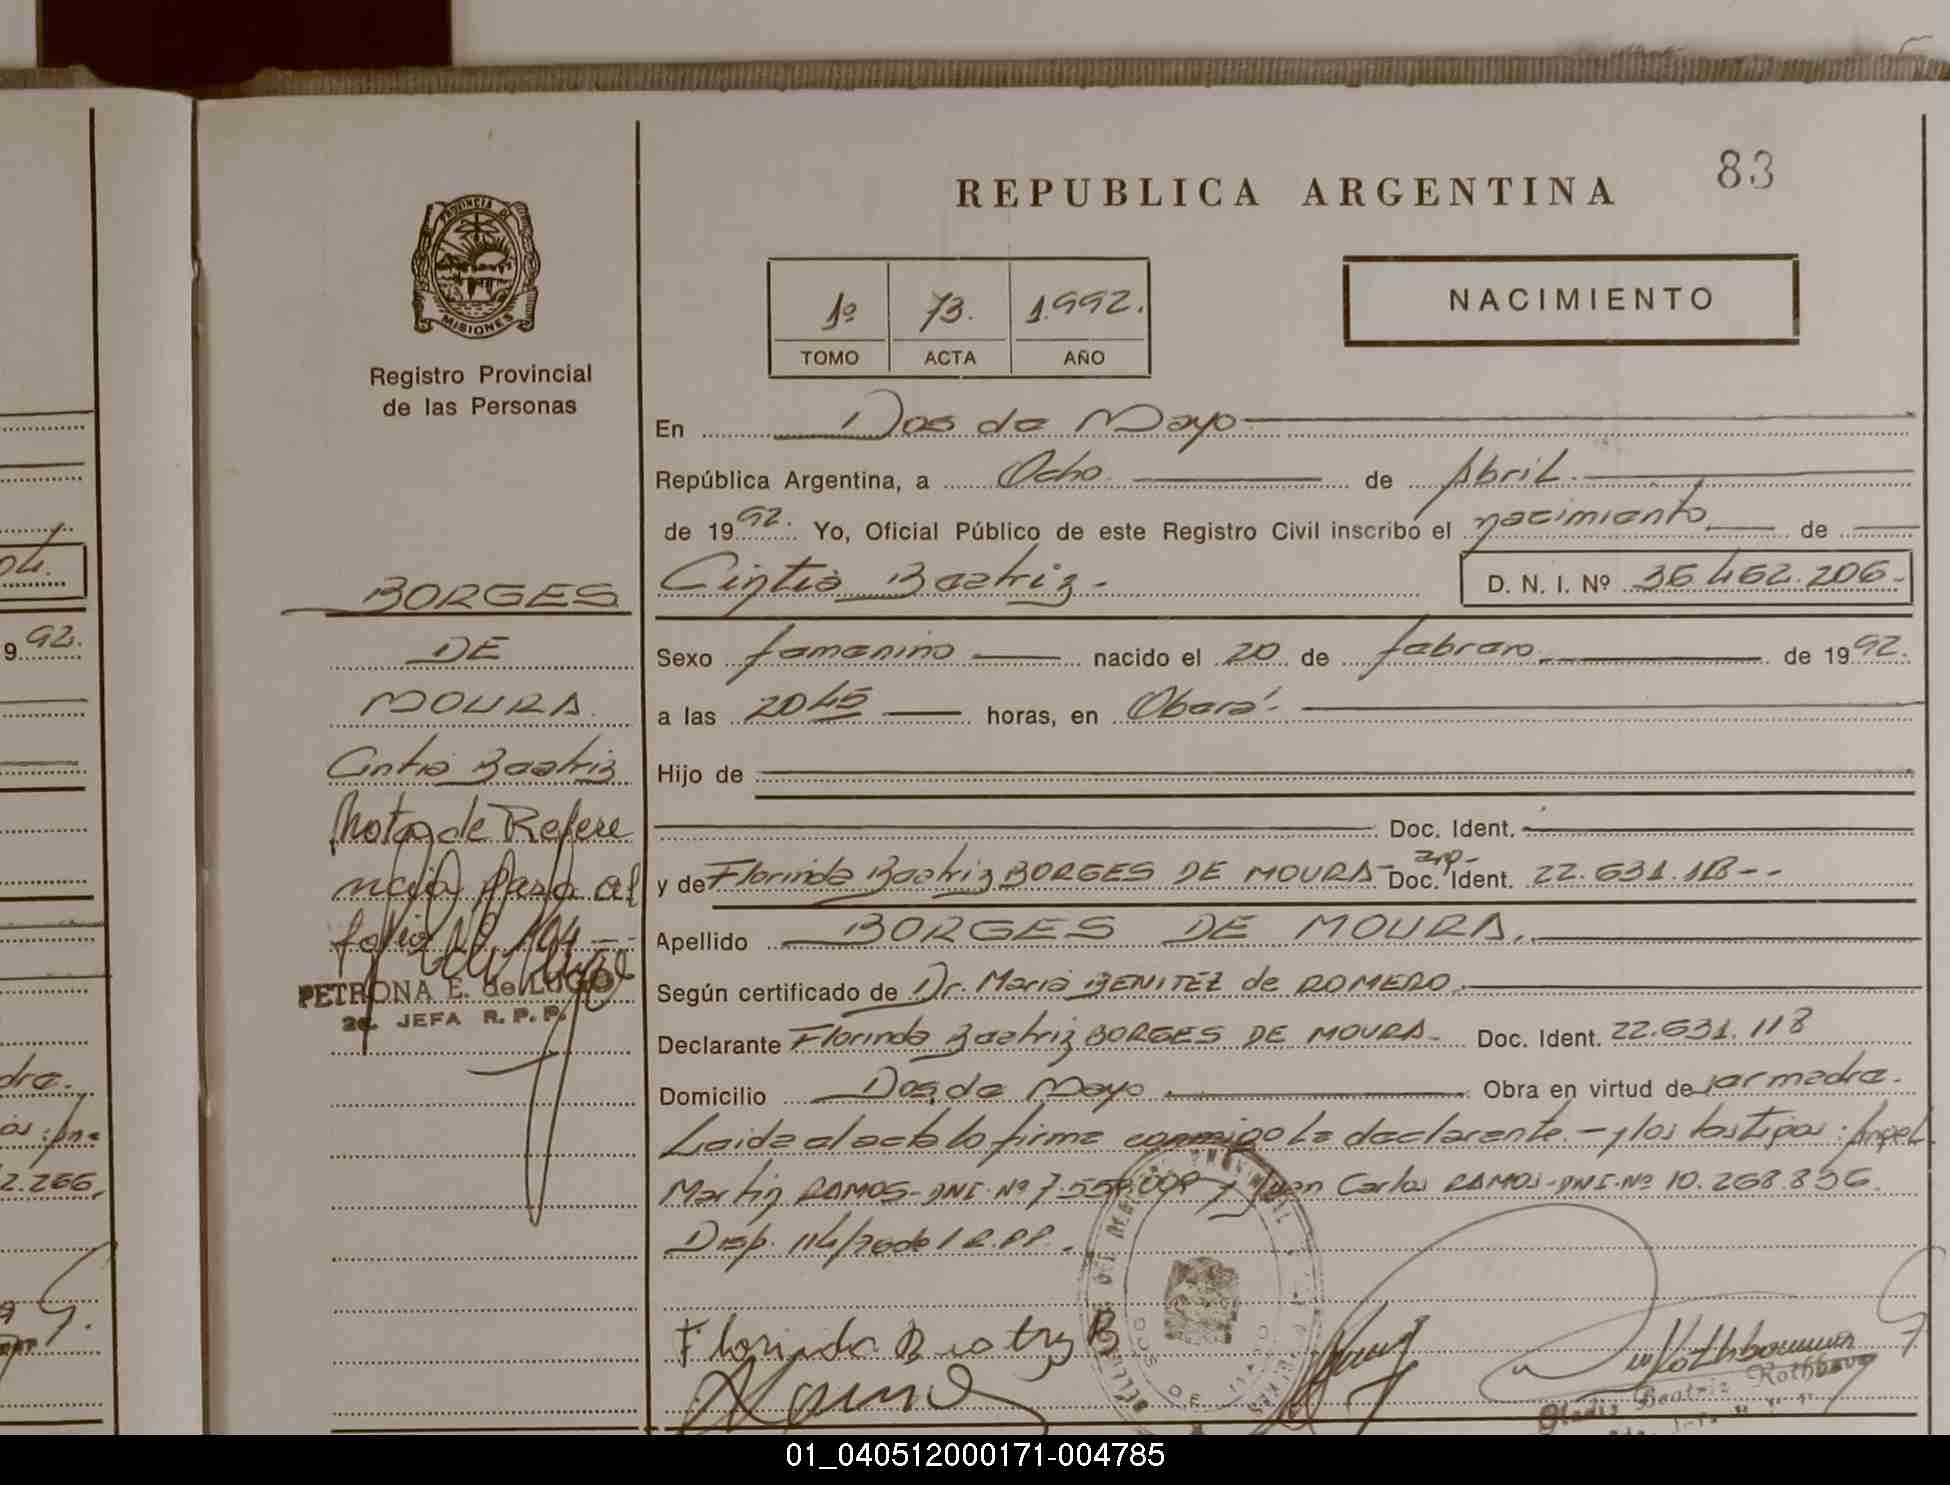 83
REPUBLICA ARGENTINA
PROVINCIA DE
MISIONES
Registro Provincial
de las Personas
1º 73. 1.992.
TOMO ACTA AÑO
NACIMIENTO
En Dos de Mayo
República Argentina, a Ocho de Abril.
de 1992. Yo, Oficial Público de este Registro Civil inscribo el nacimiento de
Cintia Beatriz - D. N. I. Nº 36.462.206.-
Sexo femenino nacido el 20 de febrero de 1992.
a las 2045 horas, en Oberá.
Hijo de
Doc. Ident.
y de Florinda Beatriz BORGES DE MOURA- Doc. Ident. 22.631.118--
Apellido BORGES DE MOURA.
Según certificado de Dr. Maria BENITEZ de ROMERO.
Declarante Florinda Beatriz BORGES DE MOURA- Doc. Ident. 22.631.118
Domicilio Dos de Mayo Obra en virtud de ser madre.
Leida el acta lo firma conmigo la declarante.- y los testigos: Angel
Martin RAMOS-DNI.Nº 7.558.009 y Juan Carlos RAMOS-DNI-Nº 10.268.836.
Disp. 114/
Florinda Beatriz B
Gladis Beatriz
BORGES
DE
MOURA.
Cintia Beatriz
Nota de Refere
ncia pasa al
folio Nº 104--
PETRONA E. de LUGO
2a. JEFA R. P. P.
992.
2.266.
01_040512000171-004785